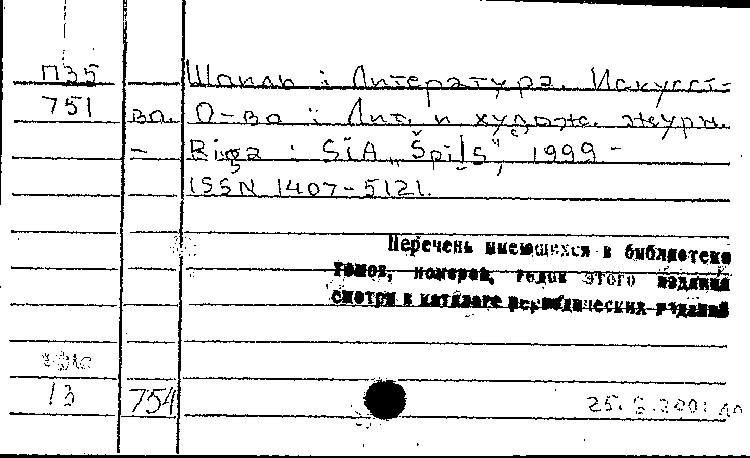 П35 Шпиль : Литература. Искусст-
751 ва. О-во : Лит. и худож. журн.
— Riga : SIA „Špiļs", 1999 -
ISSN 1407-5121.
Перечень имеющихся в библиотеке
томов, номеров, годов этого издания
смотри в каталоге периодических изданий
13 754